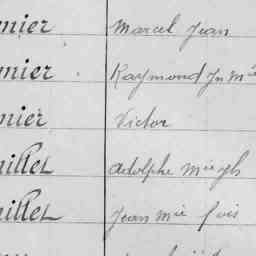 mier Marcel Jean
mier Raymond Jn Mie
mier Victor
illet Adolphe Mie Jh
illet Jean Mie fois